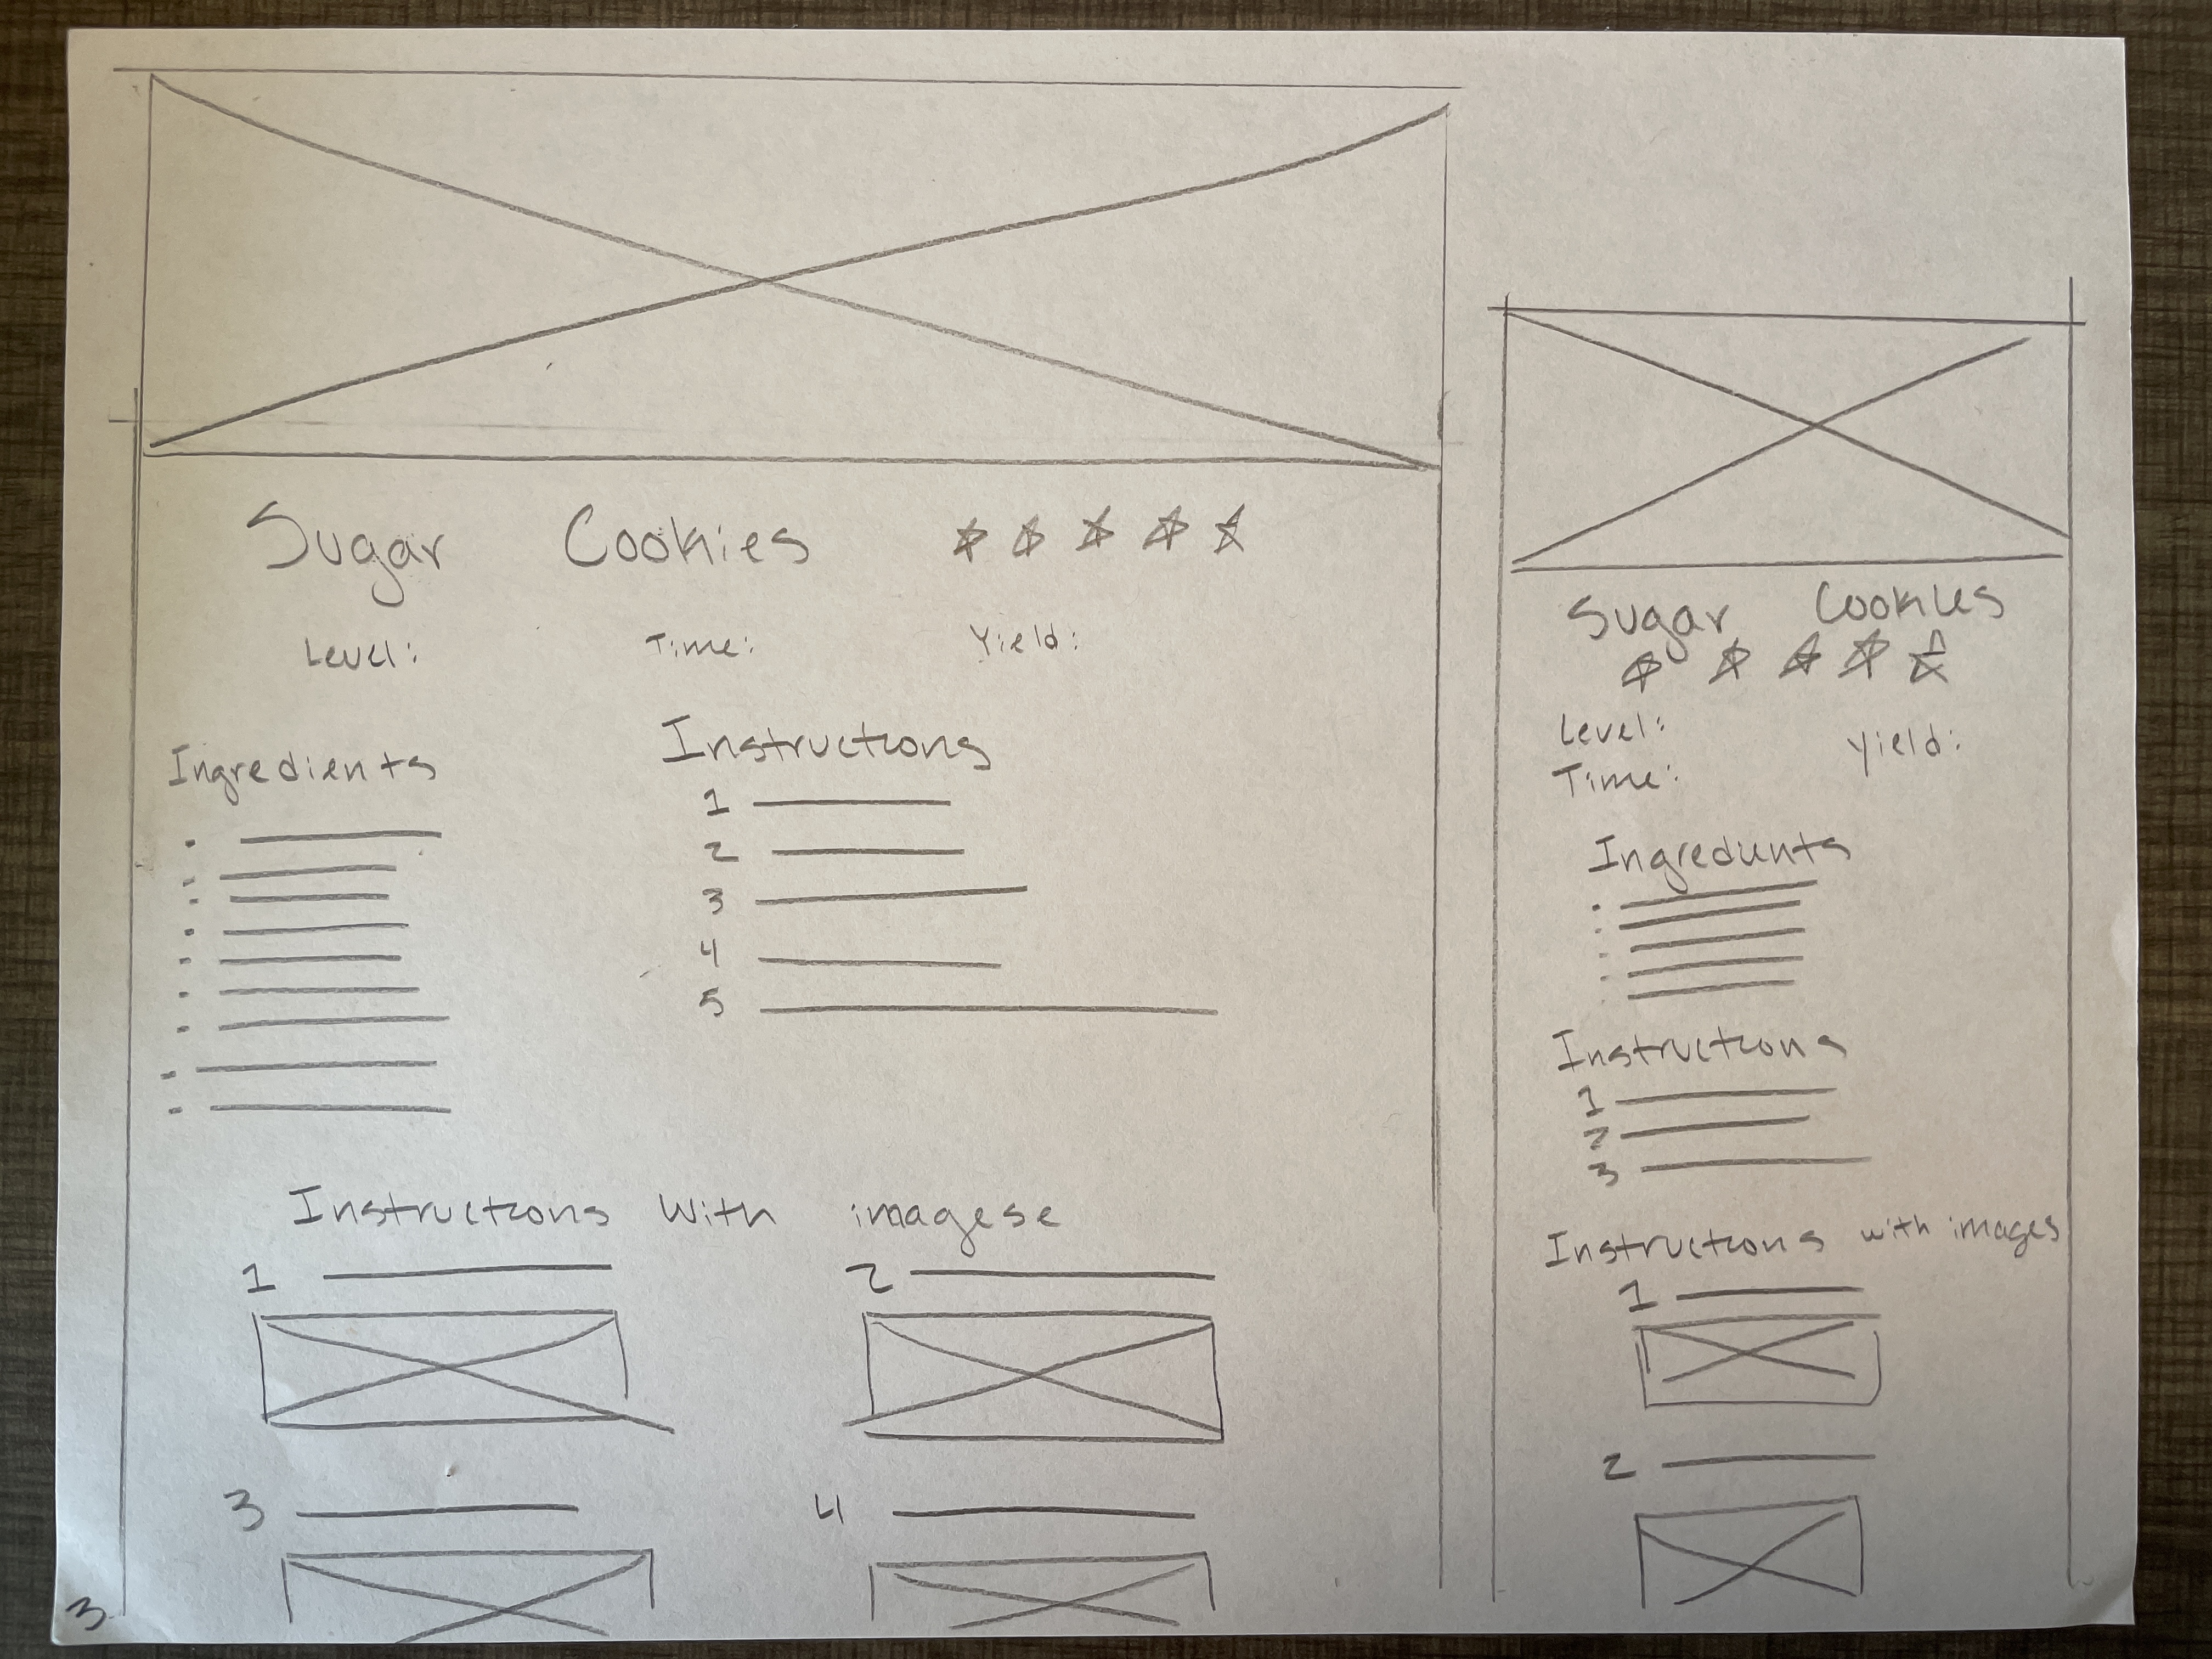 Sugar Cookies
Level: Time: Yield:
Ingredients
Instructions
1
2
3
4
5
Instructions with imagese
1 2
3 4
3
Sugar Cookies
Level:
Yield:
Time:
Ingredients
Instructions
1
2
3
Instructions with images
1
2